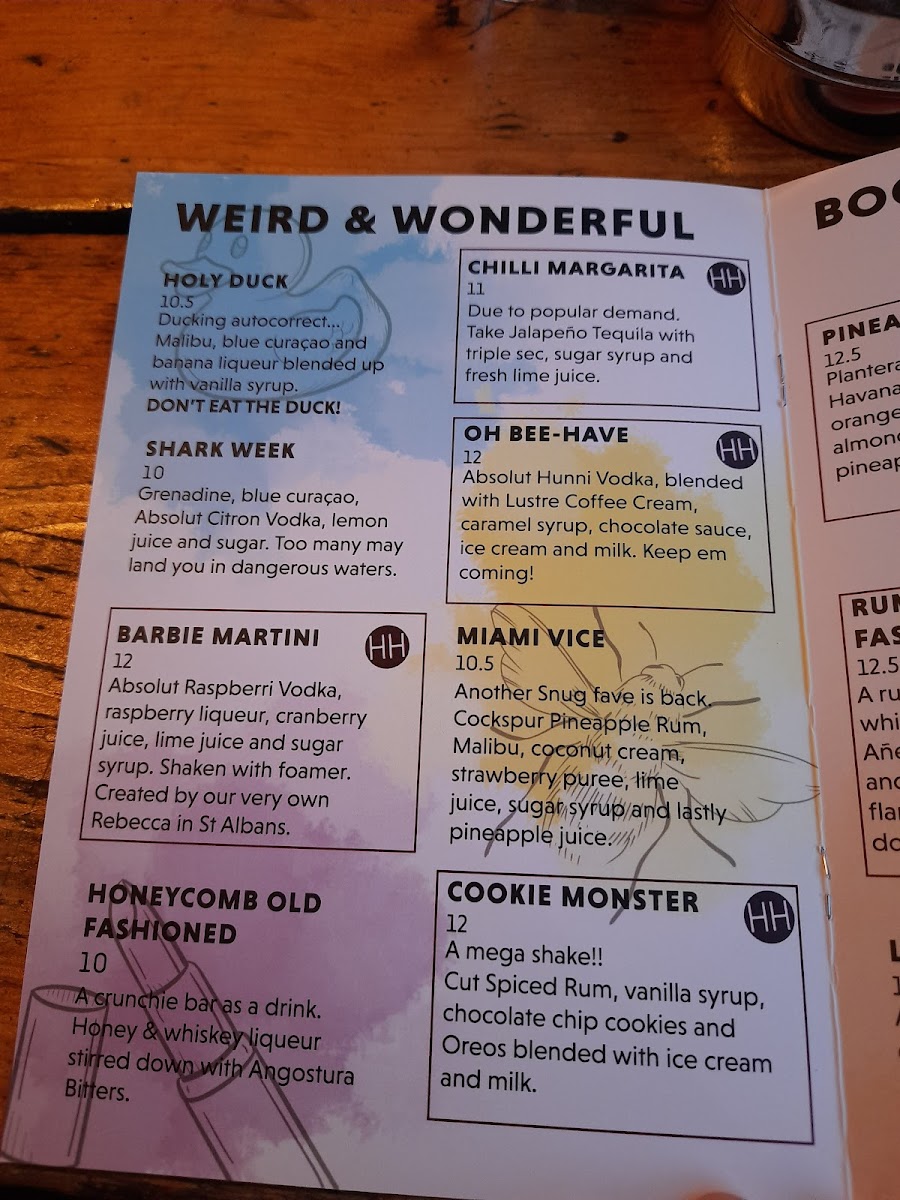 WEIRD & WONDERFUL
HOLY DUCK
10.5
Ducking autocorrect...
Malibu, blue curaçao and
banana liqueur blended up
with vanilla syrup.
DON'T EAT THE DUCK!
SHARK WEEK
10
Grenadine, blue curaçao,
Absolut Citron Vodka, lemon
juice and sugar. Too many may
land you in dangerous waters.
BARBIE MARTINI
HH
12
Absolut Raspberri Vodka,
raspberry liqueur, cranberry
juice, lime juice and sugar
syrup. Shaken with foamer.
Created by our very own
Rebecca in St Albans.
HONEYCOMB OLD
FASHIONED
10
A crunchie bar as a drink.
Honey & whiskey liqueur
stirred down with Angostura
Bitters.
CHILLI MARGARITA
HH
11
Due to popular demand.
Take Jalapeño Tequila with
triple sec, sugar syrup and
fresh lime juice.
OH BEE-HAVE
HH
12
Absolut Hunni Vodka, blended
with Lustre Coffee Cream,
caramel syrup, chocolate sauce,
ice cream and milk. Keep em
coming!
MIAMI VICE
10.5
Another Snug fave is back.
Cockspur Pineapple Rum,
Malibu, coconut cream,
strawberry puree, lime
juice, sugar syrup and lastly
pineapple juice.
COOKIE MONSTER
HH
12
A mega shake!!
Cut Spiced Rum, vanilla syrup,
chocolate chip cookies and
Oreos blended with ice cream
and milk.
BOO
PINEA
12.5
Plantera
Havana
orange
almon
pineap
RUM
FAS
12.5
A ru
whi
Añe
and
fla
do